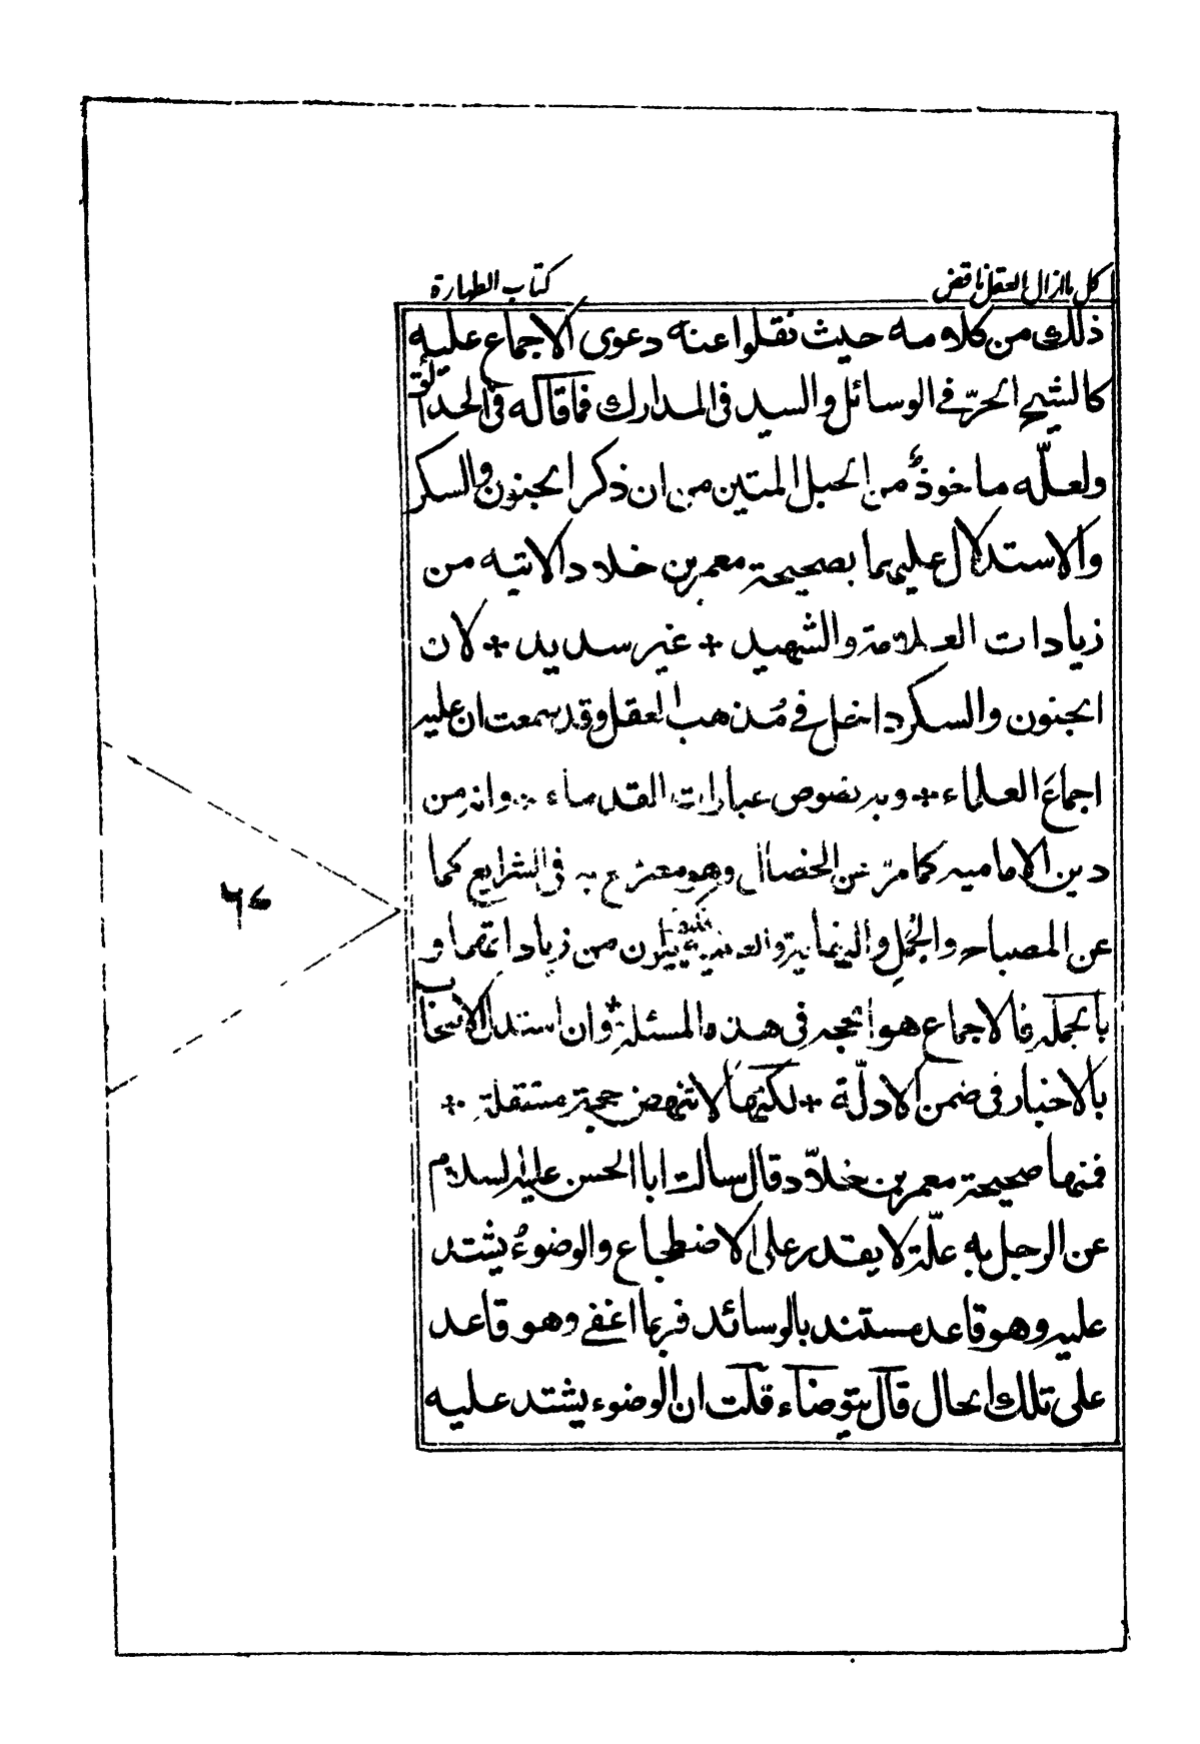 كل ما ازال العقل ناقض
كتاب الطهارة
ذلك من كلامه حيث نقلوا عنه دعوى الاجماع عليه
كالشيخ الحرّ في الوسائل والسيد في المدارك فما قاله في الحدائق
ولعلّه ماخوذٌ من الحبل المتين من ان ذكر الجنون والسكر
والاستدلال عليهما بصحيحة معمر بن خلاد الاتيه من
زيادات العلامة والشهيد + غير سديد + لان
الجنون والسكر داخل في مُذهب العقل وقد سمعت ان عليه
اجماعَ العلماء + وبه نصوص عبارات القدماء + وانه من
دين الاماميه كما مرّ عن الخصال وهو معترع به في الشرايع كما
عن المصباح والجُمل والنهاية والغنية فكيف يكون من زياداتهما و
بالجملة فالاجماع هو الحجه في هذه المسئلة + وان استدل الاصحاب
بالاخبار في ضمن الادلّة + لكنها لا تنهض حجية مستقلة +
فمنها صحيحة معمر بن خلاّد قال سالت ابا الحسن عليه السلام
عن الرجل به علّة لا يقدر على الاضطجاع والوضوءُ يشتد
عليه وهو قاعد مستند بالوسائد فربما اغفى وهو قاعد
على تلك الحال قال يتوضاء قلت ان الوضوء يشتد عليه